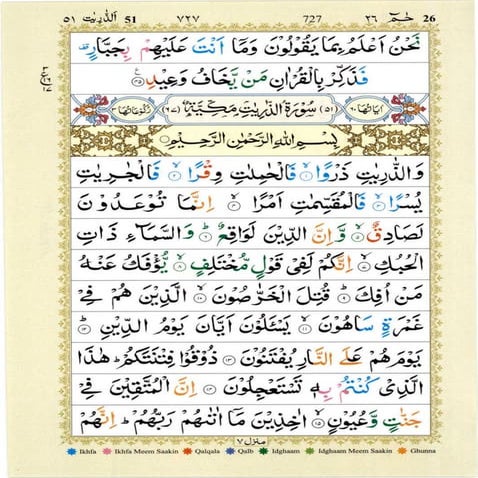 ٥١ اَلذّٰرِيٰت 51 ٧٢٧ 727 حٰمٓ ٢٦ 26
نَحْنُ اَعْلَمُ بِمَا يَقُوْلُوْنَ وَمَآ اَنْتَ عَلَيْهِمْ بِجَبَّارٍ
فَذَكِّرْ بِالْقُرْاٰنِ مَنْ يَّخَافُ وَعِيْدِ ۝٤٥
اٰيَاتُهَا ٦٠ (٥١) سُوْرَةُ الذّٰرِيٰتِ مَكِّيَّةٌ (٦٧) رُكُوْعَاتُهَا ٣
بِسْمِ اللّٰهِ الرَّحْمٰنِ الرَّحِيْمِ
وَالذّٰرِيٰتِ ذَرْوًا ۝١ فَالْحٰمِلٰتِ وِقْرًا ۝٢ فَالْجٰرِيٰتِ
يُسْرًا ۝٣ فَالْمُقَسِّمٰتِ اَمْرًا ۝٤ اِنَّمَا تُوْعَدُوْنَ
لَصَادِقٌ ۝٥ وَّاِنَّ الدِّيْنَ لَوَاقِعٌ ۝٦ وَالسَّمَآءِ ذَاتِ
الْحُبُكِ ۝٧ اِنَّكُمْ لَفِيْ قَوْلٍ مُّخْتَلِفٍ ۝٨ يُّؤْفَكُ عَنْهُ
مَنْ اُفِكَ ۝٩ قُتِلَ الْخَرّٰصُوْنَ ۝١٠ الَّذِيْنَ هُمْ فِيْ
غَمْرَةٍ سَاهُوْنَ ۝١١ يَسْـَٔلُوْنَ اَيَّانَ يَوْمُ الدِّيْنِ ۝١٢
يَوْمَ هُمْ عَلَى النَّارِ يُفْتَنُوْنَ ۝١٣ ذُوْقُوْا فِتْنَتَكُمْ ؕ هٰذَا
الَّذِيْ كُنْتُمْ بِهٖ تَسْتَعْجِلُوْنَ ۝١٤ اِنَّ الْمُتَّقِيْنَ فِيْ
جَنّٰتٍ وَّعُيُوْنٍ ۝١٥ اٰخِذِيْنَ مَآ اٰتٰىهُمْ رَبُّهُمْ ؕ اِنَّهُمْ
منزل ٧
Ikhfa Ikhfa Meem Saakin Qalqala Qalb Idghaam Idghaam Meem Saakin Ghunna